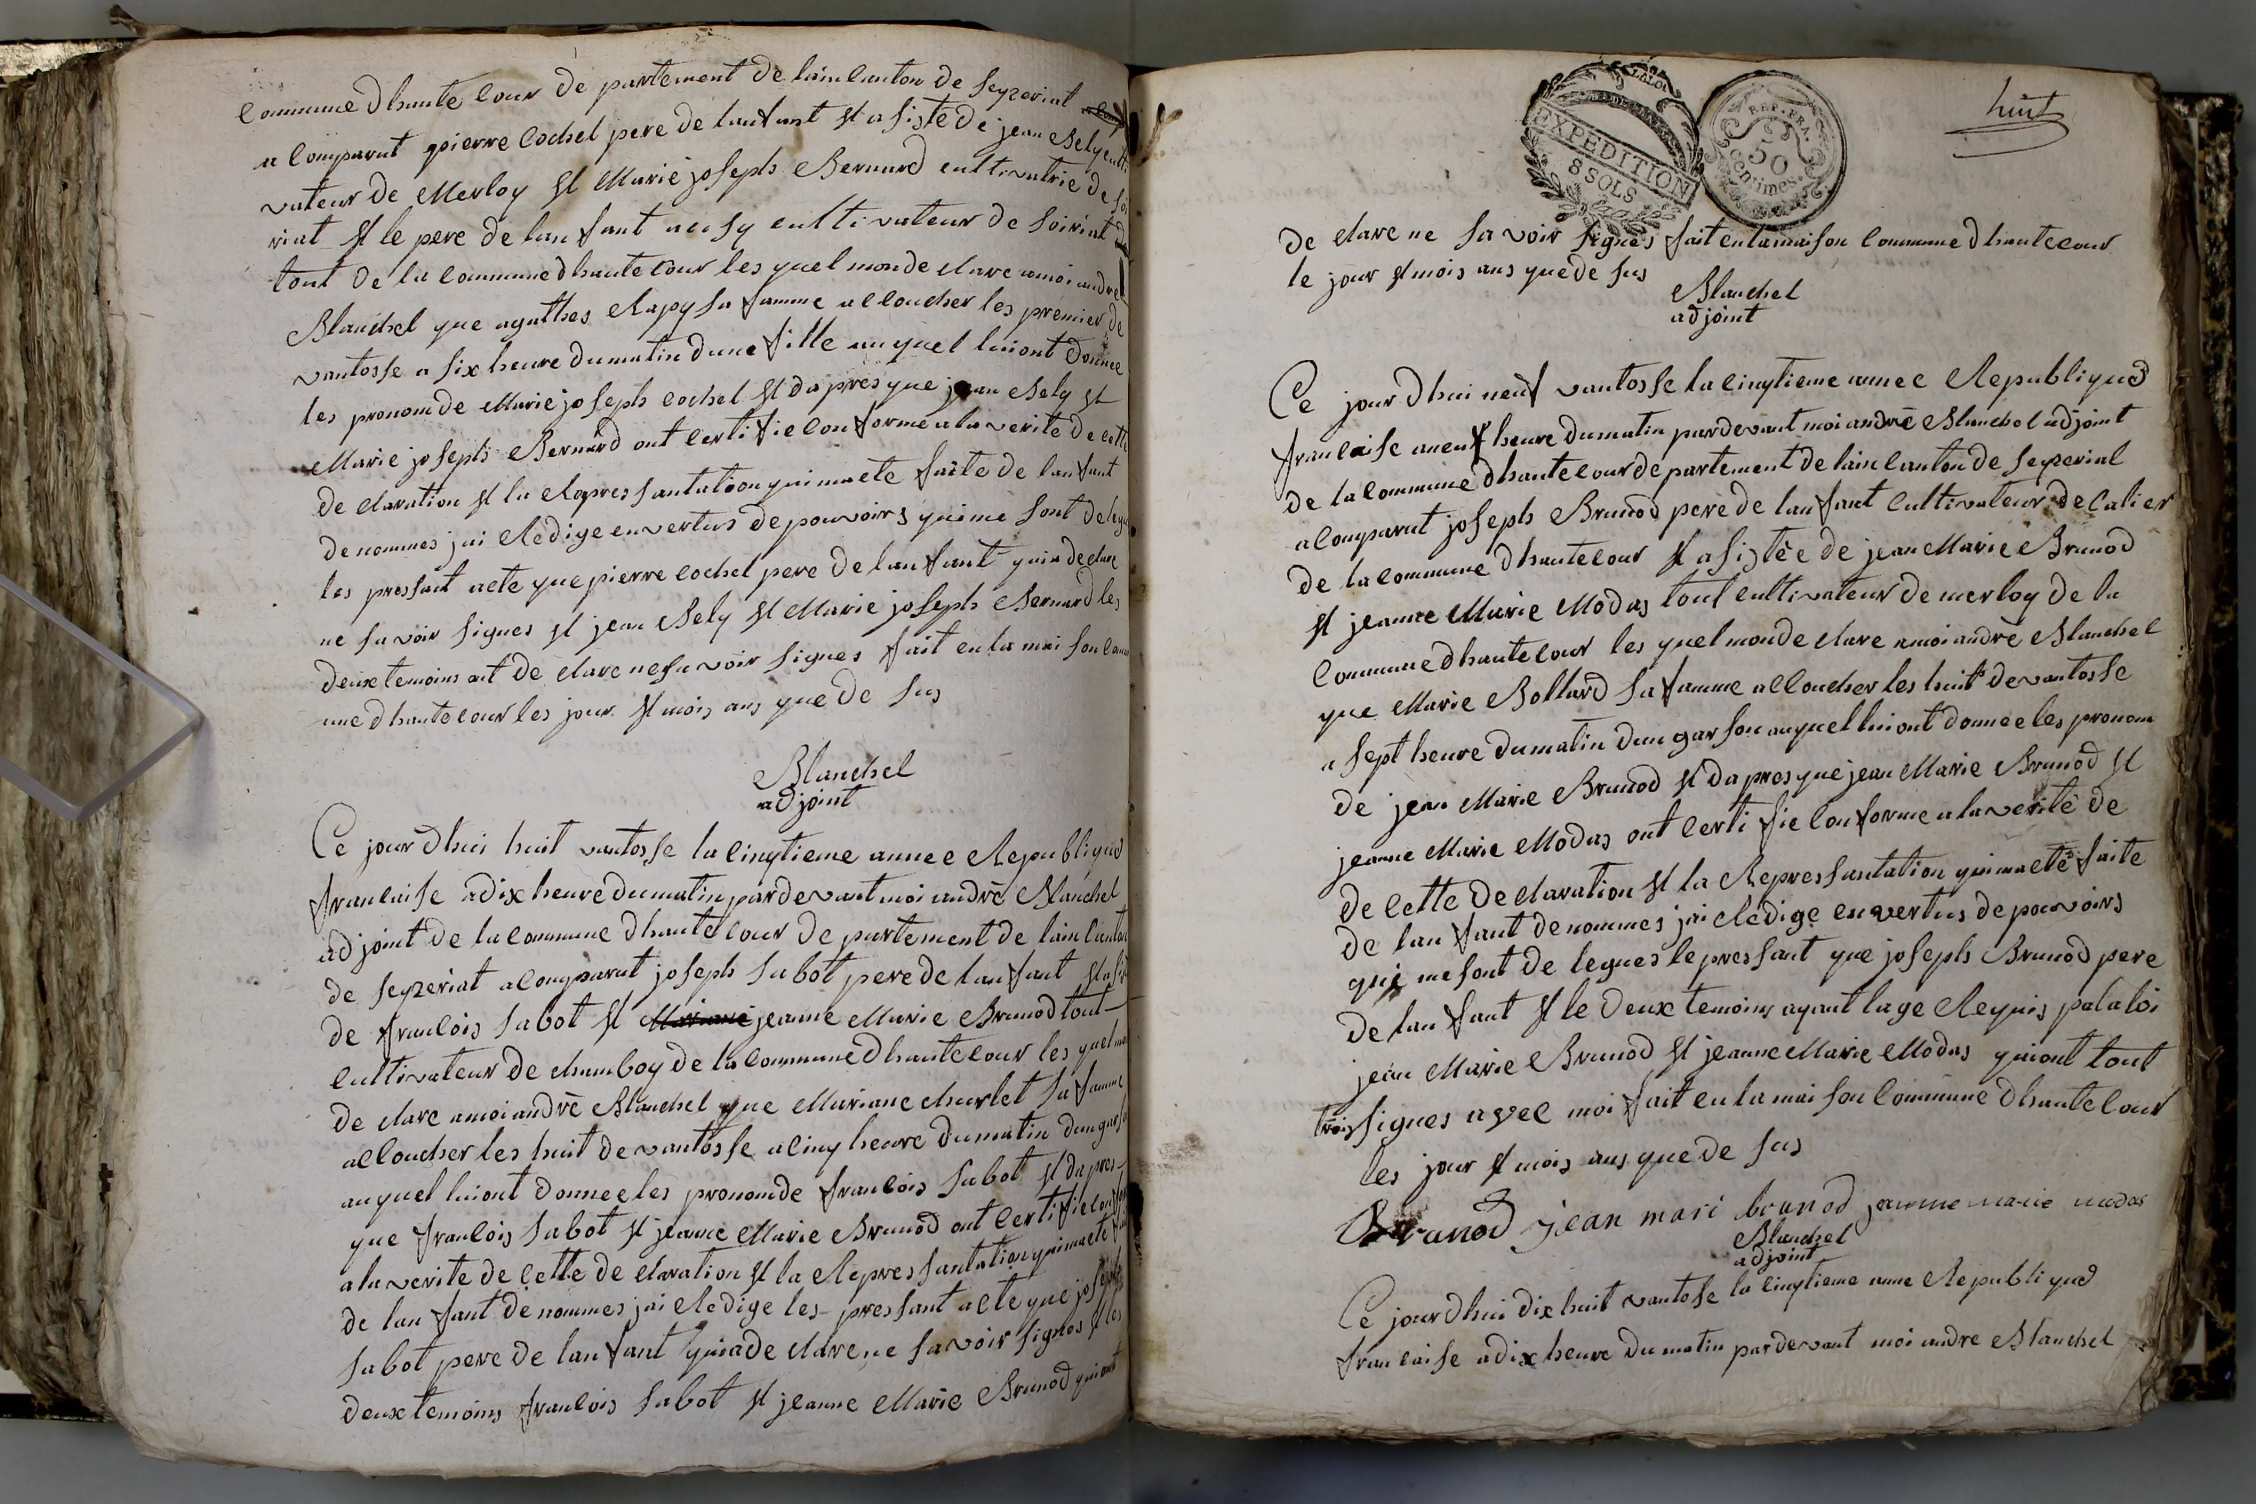 commune dhaute cour de partement de lain canton de seyzeriat
a comparut pierre cochet pere de lanfant et a sisté de jean Bely culti
vateur de Merloy et Marie joseph Bernard cultivatrie de soi
riat et le pere de lanfant ausy culti vateur de soiriat
tout de la commune dhautecour les quel monde clare amoi andre
Blanchet que agathes Rapy sa famme accoucher les premier de
vantosse a six heure dumatin dune fille auquel luiont donnee
les pronomde Marie joseph cochet et dapres que jean Bely et
Marie joseph Bernard ont certifie conforme ala verite de cette
de claration et la Represantation quimaete faite de lanfant
de nommes jai Redige envertus depouvoirs quime sont delegu
les pressant acte que pierre cochet pere de lanfant quia declare
ne savoir signes et jean Bely et Marie joseph Bernard les
deuxtemoins ont de clare nesavoir signes fait en la mai son com
une dhautecour les jour et mois ans que de sus
Blanchet
adjoint
Ce jour dhui huit vantosse la cinqtieme annee Republique
francaise adix heure dumatin pardevant moi andré Blanchet
adjoint de la commune dhautecour de partement de lain canton
de seyzeriat a comparut joseph sabot pere de lanfant et asis
de francois sabot et jeanne Marie Brunod tout
cultivateur de chamboy de la commune dhautecour les quel mon
de clare amoi andré Blanchet que Mariane charlet sa famme
accoucher les huit de vantosse a cinq heure dumatin dun garso
auquel luiont donnee les pronomde francois sabot et dapres
que francois sabot et jeanne Marie Brunod ont certifie conf
ala verite de cette de claration et la Represantation quimaete
de lanfant de nommes jai Redige les pressant acte que joseph
sabot pere de lanfant quiade clare ne savoir signes et les
deuxtemoins francois sabot et jeanne Marie Brunod quiont
LA LOI
EXPEDITION
8 SOLS
REP. FRA.
50
centimes
huit
de clare ne savoir signes fait en lamaison commune dhautecour
le jour et mois ans que de sus
Blanchet
adjoint
Ce jour dhui neuf vantosse la cinqtieme annee Republique
francaise aneuf heure dumatin pardevant moi andré Blanchet adjoint
de la commune dhautecour de partement de lain canton de seyzeriat
a comparut joseph Brunod pere de lanfant cultivateur de calier
de la commune dhautecour et asistée de jean Marie Brunod
et jeanne Marie Modas tout cultivateur de merloy de la
commune dhautecour les quel monde clare amoi andré Blanchet
que Marie Bollard sa famme accoucher les huit de vantosse
a sept heure dumatin dun garson auquel luiont donnee les pronom
de jean Marie Brunod et dapres que jean Marie Brunod et
jeanne Marie Modas ont certi fie conforme a laverité de
de cette de claration et la Represantation quimaeté faite
de lanfant denommes jai Redige envertus de pouvoirs
qui mesont de legues lepressant que joseph Brunod pere
de lanfant et le deux temoins ayant lage Requis pala loi
jean Marie Brunod et jeanne Marie Modas quiont tout
trois signes avec moi fait en la mai son commune dhautecour
les jour et mois ans que de sus
Brunod jean mari brunod jeanne marie modas
Blanchet
adjoint
Ce jour dhui dix huit vantosse la cinqtieme anne Republique
francaise a dix heure du matin pardevant moi andre Blanchet